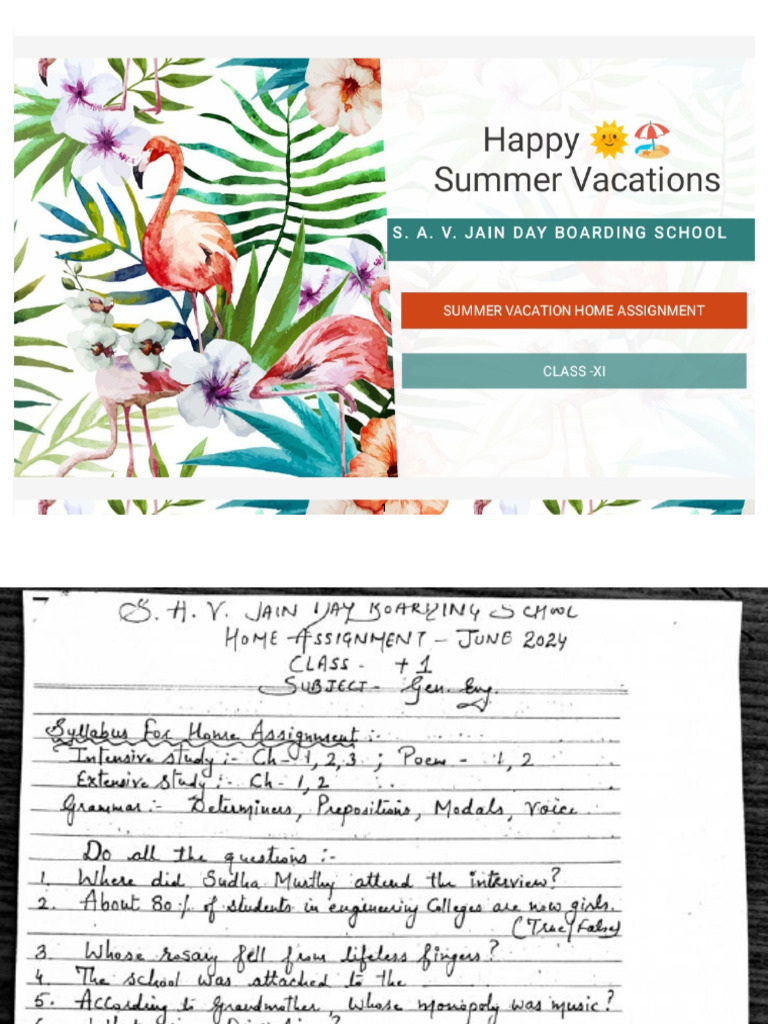 Happy 🌞🏖️
Summer Vacations
S. A. V. JAIN DAY BOARDING SCHOOL
SUMMER VACATION HOME ASSIGNMENT
CLASS -XI
1
S. A. V. JAIN DAY BOARDING SCHOOL
HOME ASSIGNMENT - JUNE 2024
CLASS - +1
SUBJECT- Gen. Eng.
Syllabus For Home Assignment :-
Intensive study :- Ch- 1, 2, 3 ; Poem - 1, 2
Extensive Study :- Ch- 1, 2
Grammar :- Determiners, Prepositions, Modals, Voice
Do all the questions :-
1. Where did Sudha Murthy attend the interview?
2. About 80% of students in engineering Colleges are now girls.
(True/False)
3. Whose rosary fell from lifeless fingers?
4 The school was attached to the
5. According to Grandmother, whose monopoly was music?